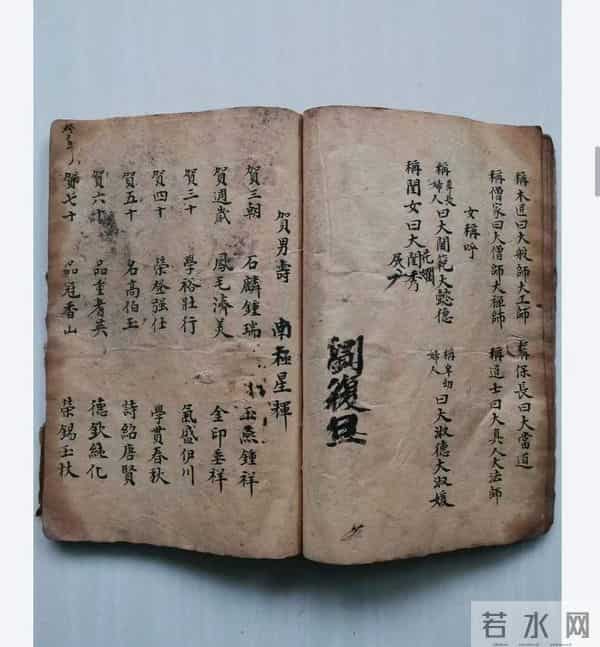 稱木匠曰大般師大工師 稱保長曰大當道
稱僧家曰大僧師大禪師 稱道士曰大真人大法師
女稱呼
稱尊長婦人曰大閫範大懿德 稱卑幼婦人曰大淑德大淑媛
稱閨女曰大閨秀
劉復旦
賀男壽 南極星輝
賀三朝 石麟鍾瑞 玉燕鍾祥
賀週歲 鳳毛濟美 金印垂祥
賀三十 學裕壯行 氣盛伊川
賀四十 榮登強仕 學貫春秋
賀五十 名高伯玉 詩紹唐賢
賀六十 品重耆英 德欽純化
賀七十 品冠香山 榮錫玉杖
若水网